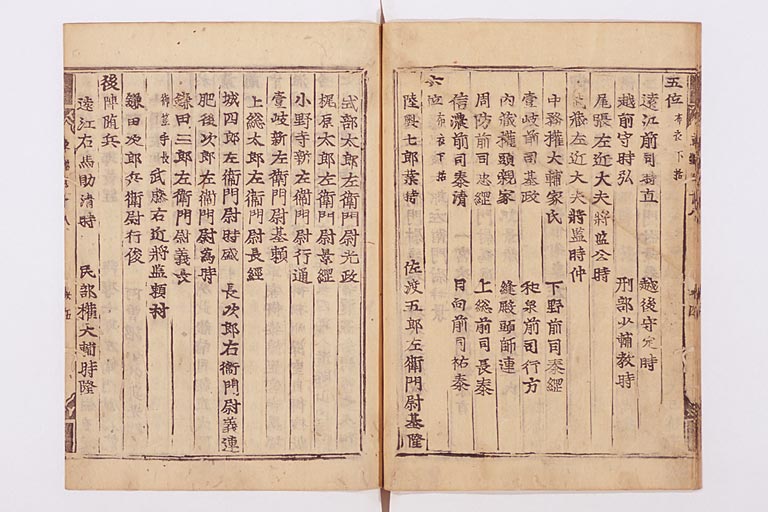 五位 布衣下括
遠江前司時直 越後守允時
越前守時弘 刑部少輔教時
尾張左近大夫將監公時
武藏左近大夫將監時仲
中務權大輔家氏 下野前司泰經
壹岐前司基政 和泉前司行方
內藏權頭親家 縫殿頭師連
周防前司忠經 上總前司長泰
信濃前司泰清 日向前司祐泰
六位 布衣下括
陸奧七郎業時 佐渡五郎左衛門尉基隆
式部太郎左衛門尉光政
梶原太郎左衛門尉景經
小野寺新左衛門尉行通
壹岐新左衛門尉基頼
上總太郎左衛門尉長經
城四郎左衛門尉時盛 長次郎右衛門尉義連
肥後次郎左衛門尉爲時
鎌田三郎左衛門尉義長
武藤右近將監頼村
鎌田次郎兵衛尉行俊
後陣随兵
遠江右馬助清時 民部權大輔時隆